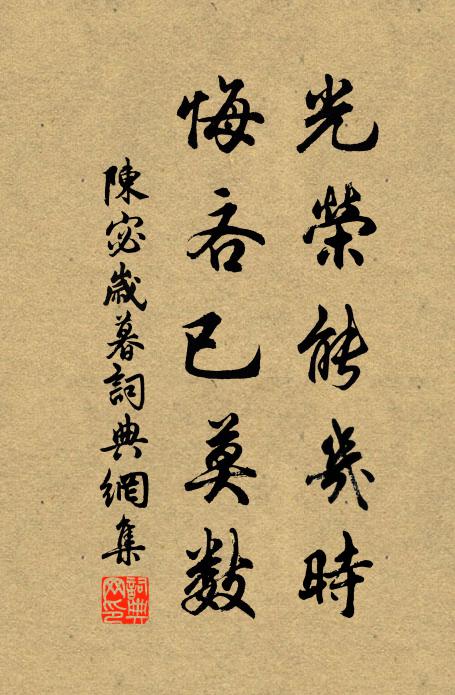 光榮能幾時
悔吝已莫數
陳宓歲暮詞典網集
詞典网印